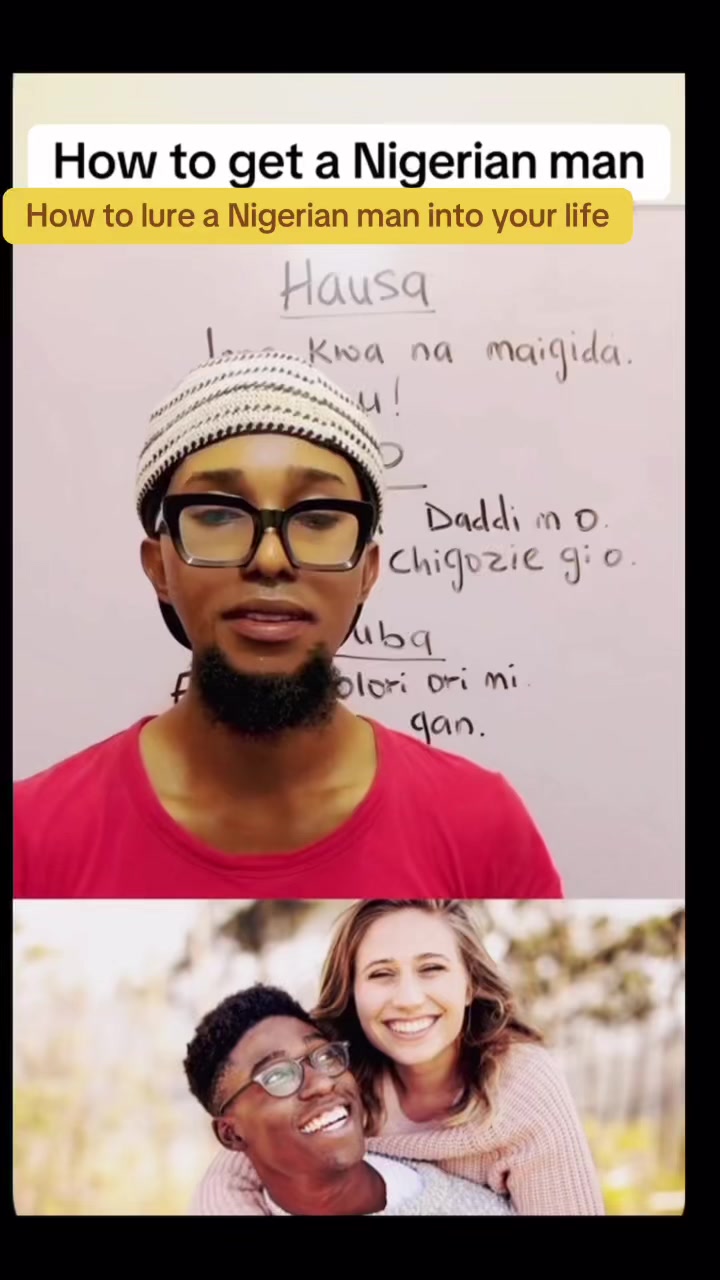 How to get a Nigerian man
How to lure a Nigerian man into your life
Hausa
kwa na maigida.
u!
o
Daddi m o.
Chigozie gi o.
uba
olori ori mi.
gan.